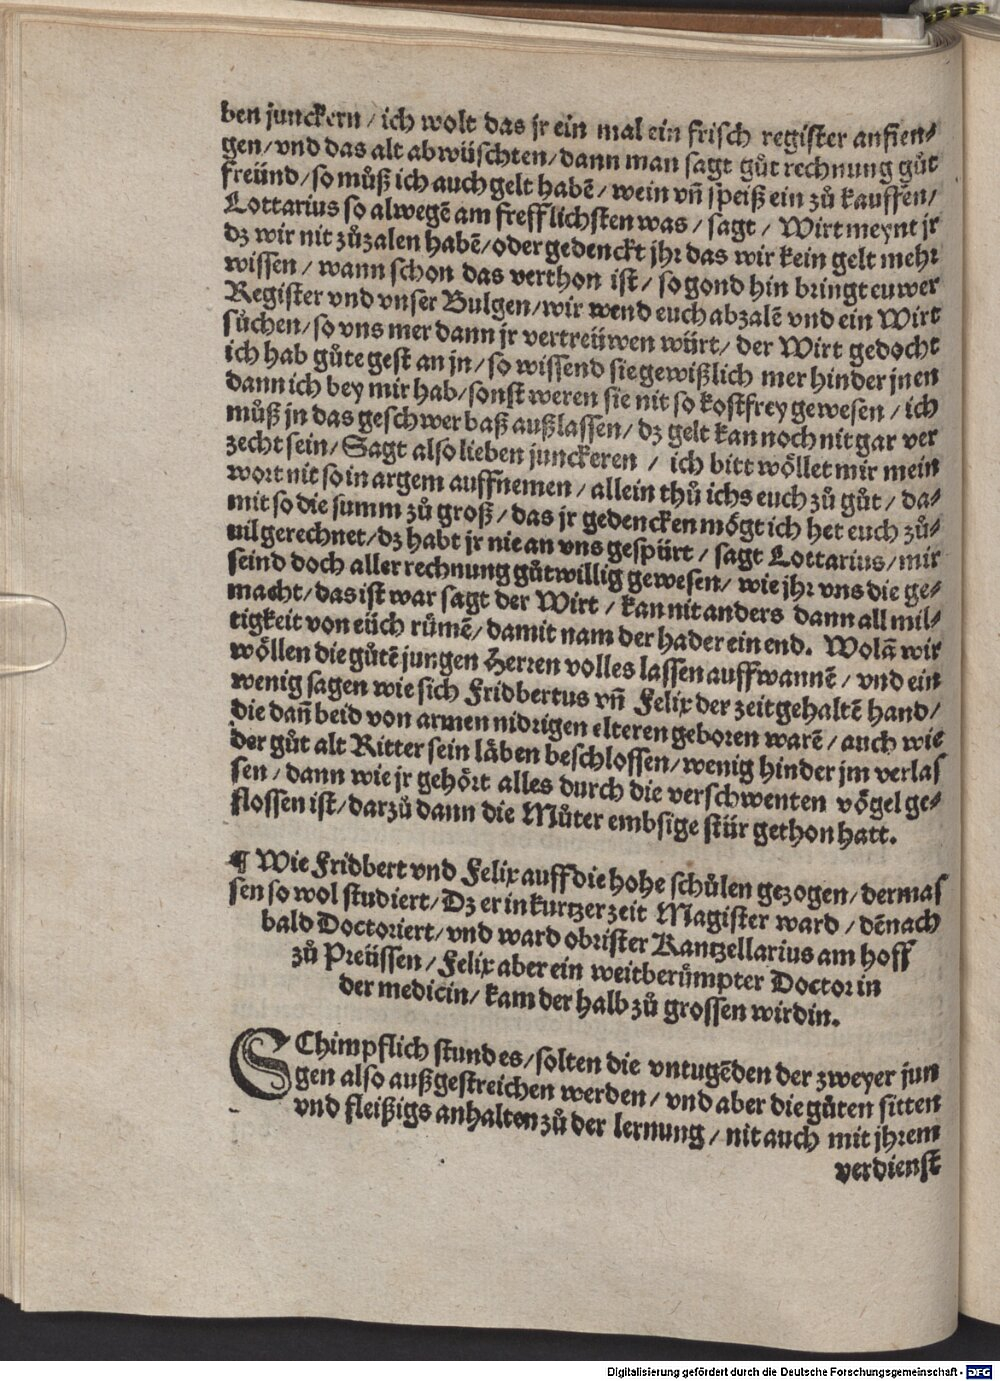 ben junckern / ich wolt das jr ein mal ein frisch register anfien⸗
gen / vnd das alt abwüschten / dann man sagt gůt rechnung gůt
freünd / so můß ich auch gelt habē / wein vñ speiß ein zů kauffen /
Lottarius so alwegē am frefflichsten was / sagt / Wirt meynt jr
dz wir nit zůzalen habē / oder gedenckt jhr das wir kein gelt mehr
wissen / wann schon das verthon ist / so gond hin bringt euwer
Register vnd vnser Bulgen / wir wend euch abzalē vnd ein Wirt
sůchen / so vns mer dann jr vertreüwen würt / der Wirt gedocht
ich hab gůte gest an jn / so wissend sie gewißlich mer hinder jnen
dann ich bey mir hab / sonst weren sie nit so kostfrey gewesen / ich
můß jn das geschwer baß außlassen / dz gelt kan noch nit gar ver
zecht sein / Sagt also lieben junckeren / ich bitt wöllet mir mein
wort nit so in argem auffnemen / allein thů ichs euch zů gůt / da⸗
mit so die summ zů groß / das jr gedencken mögt ich het euch zů⸗
uil gerechnet / dz habt jr nie an vns gespürt / sagt Lottarius / mir
seind doch aller rechnung gůtwillig gewesen / wie jhr vns die ge⸗
macht / das ist war sagt der Wirt / kan nit anders dann all mil⸗
tigkeit von eüch rümē / damit nam der hader ein end. Wolā wir
wöllen die gůtē jungen Herren volles lassen auffwannē / vnd ein
wenig sagen wie sich Fridbertus vñ Felix der zeit gehaltē hand /
die dañ beid von armen nidrigen elteren geboren warē / auch wie
der gůt alt Ritter sein läben beschlossen / wenig hinder jm verlas
sen / dann wie jr gehört alles durch die verschwenten vögel ge⸗
flossen ist / darzů dann die Můter embsige stür gethon hatt.
¶ Wie Fridbert vnd Felix auff die hohe schůlen gezogen / dermas
sen so wol studiert / Dz er in kurtzer zeit Magister ward / dēnach
bald Doctoriert / vnd ward obrister Kantzellarius am hoff
zů Preüssen / Felix aber ein weitberümpter Doctor in
der medicin / kam der halb zů grossen wirdin.
SChimpflich stund es / solten die vntugēden der zweyer jun
gen also außgestreichen werden / vnd aber die gůten sitten
vnd fleißigs anhalten zů der lernung / nit auch mit jhrem
verdienst
Digitalisierung gefördert durch die Deutsche Forschungsgemeinschaft - DFG